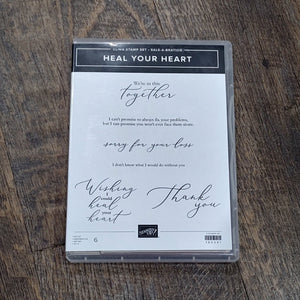 CLING STAMP SET
HEAL YOUR HEART
We're in this
together
I can't promise to always fix your problems,
but I can promise you won't ever face them alone.
sorry for your loss
I don't know what I would do without you
Wishing
I could
heal
your
heart
Thank
you
6
STAMPIN' UP!